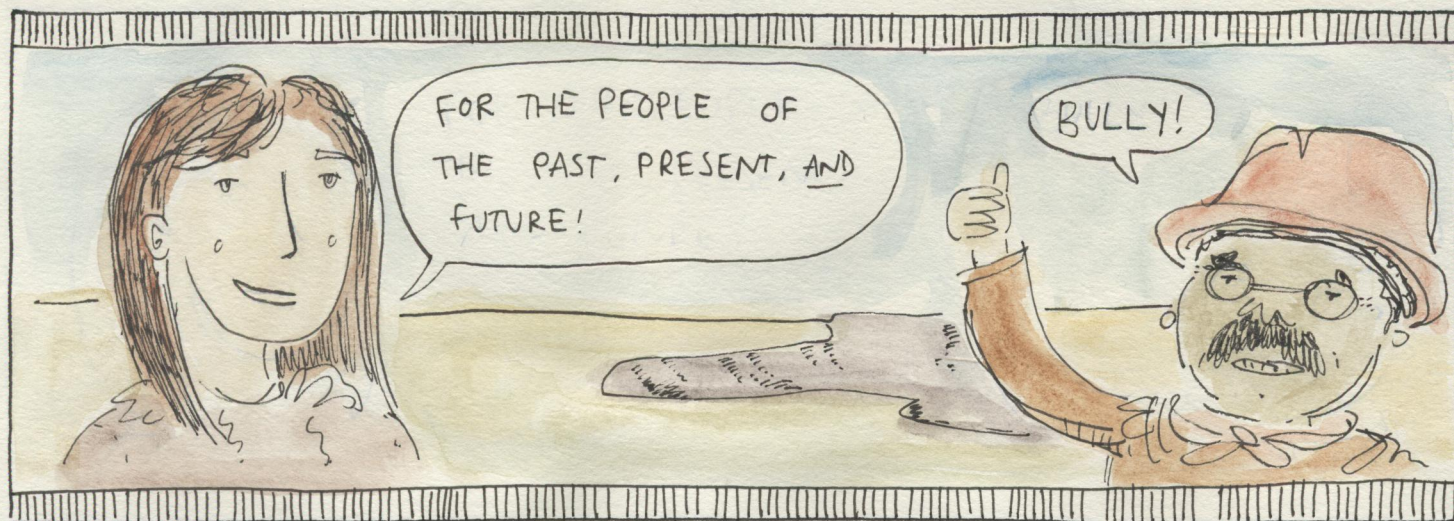 FOR THE PEOPLE OF
THE PAST, PRESENT, AND
FUTURE!
BULLY!